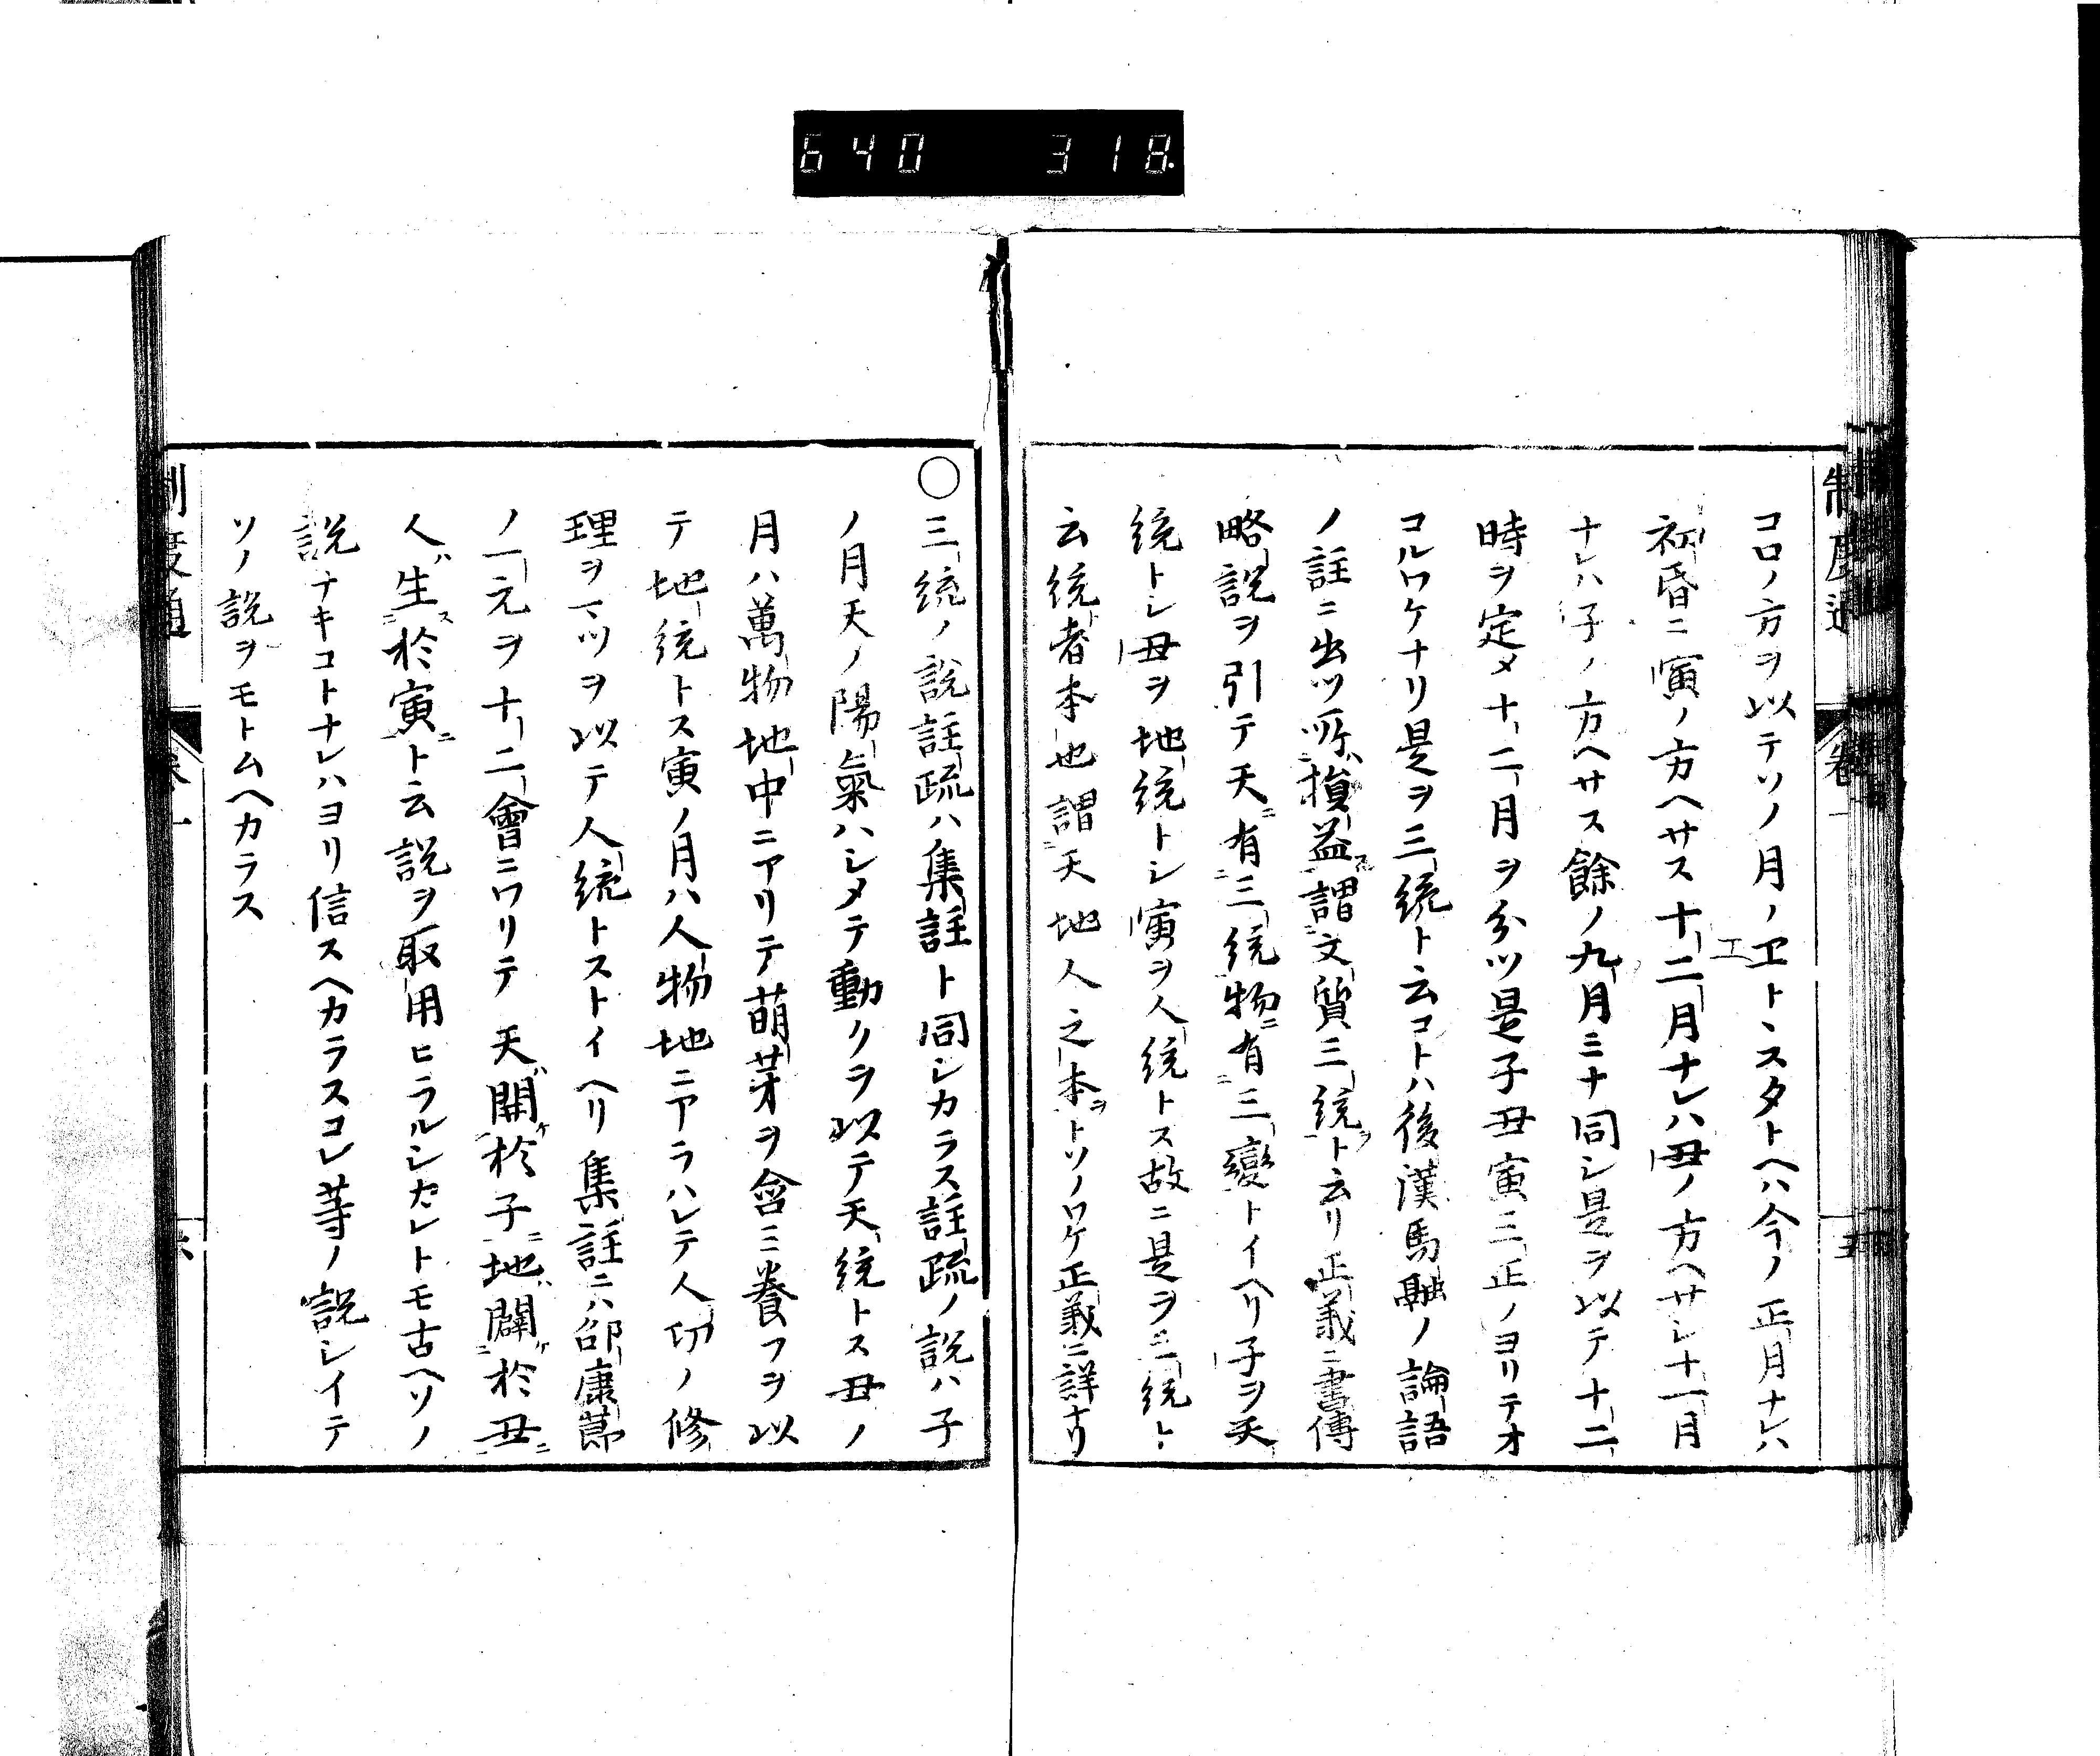 640 318
制度通 卷一 五
コロノ方ヲ以テソノ月ノヱトヽスタトヘハ今ノ正月ナレハ
初昏ニ寅ノ方ヘサス十二月ナレハ丑ノ方ヘサレ十一月
ナレハ子ノ方ヘサス餘ノ九月ミナ同シ是ヲ以テ十二
時ヲ定メ十二月ヲ分ツ是子丑寅三正ノヨリテオ
コルワケナリ是ヲ三統ト云コトハ後漢馬融ノ論語
ノ註ニ出ツ所損益謂文質三統ト云リ正義ニ書傳
略説ヲ引テ天有三統物有三變トイヘリ子ヲ天
統トシ丑ヲ地統トシ寅ヲ人統トス故ニ是ヲ三統ト
云統者本也謂天地人之本トソノワケ正義ニ詳ナリ
○三統ノ説註疏ハ集註ト同シカラス註疏ノ説ハ子
ノ月天ノ陽氣ハシメテ動クヲ以テ天統トス丑ノ
月ハ萬物地中ニアリテ萌芽ヲ含ミ養フヲ以
テ地統トス寅ノ月ハ人物地ニアラハレテ人功ノ修
理ヲ下ツヲ以テ人統トストイヘリ集註ニハ邵康節
ノ一元ヲ十二會ニワリテ天開於子地闢於丑
人生於寅ト云説ヲ取用ヒラルシカレトモ古ヘソノ
説ナキコトナレハヨリ信スヘカラスコレ等ノ説シイテ
ソノ説ヲモトムヘカラス
制度通 卷一